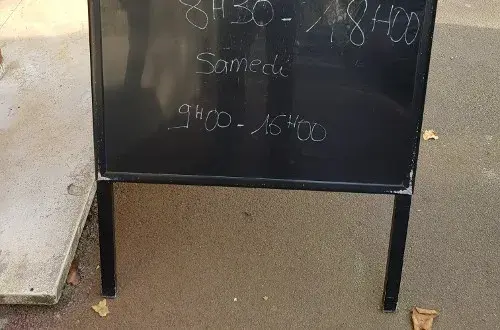 8H30 - 18H00
Samedi
9H00 - 16H00